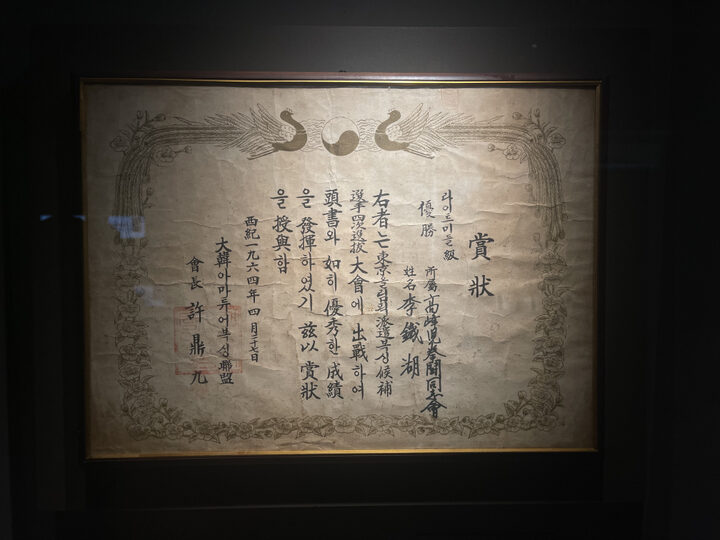 賞狀
라이트미들級
優勝
所屬 拳鬪同志會
姓名 李鐵湖
右者는 東京올림픽派遣복싱候補
選手四次選拔大會에 出戰하여
頭書와 如히 優秀한 成績
을 發揮하였기 玆以 賞狀
을 授與함
西紀一九六四年 四月二十七日
大韓아마튜어복싱聯盟
會長 許鼎九